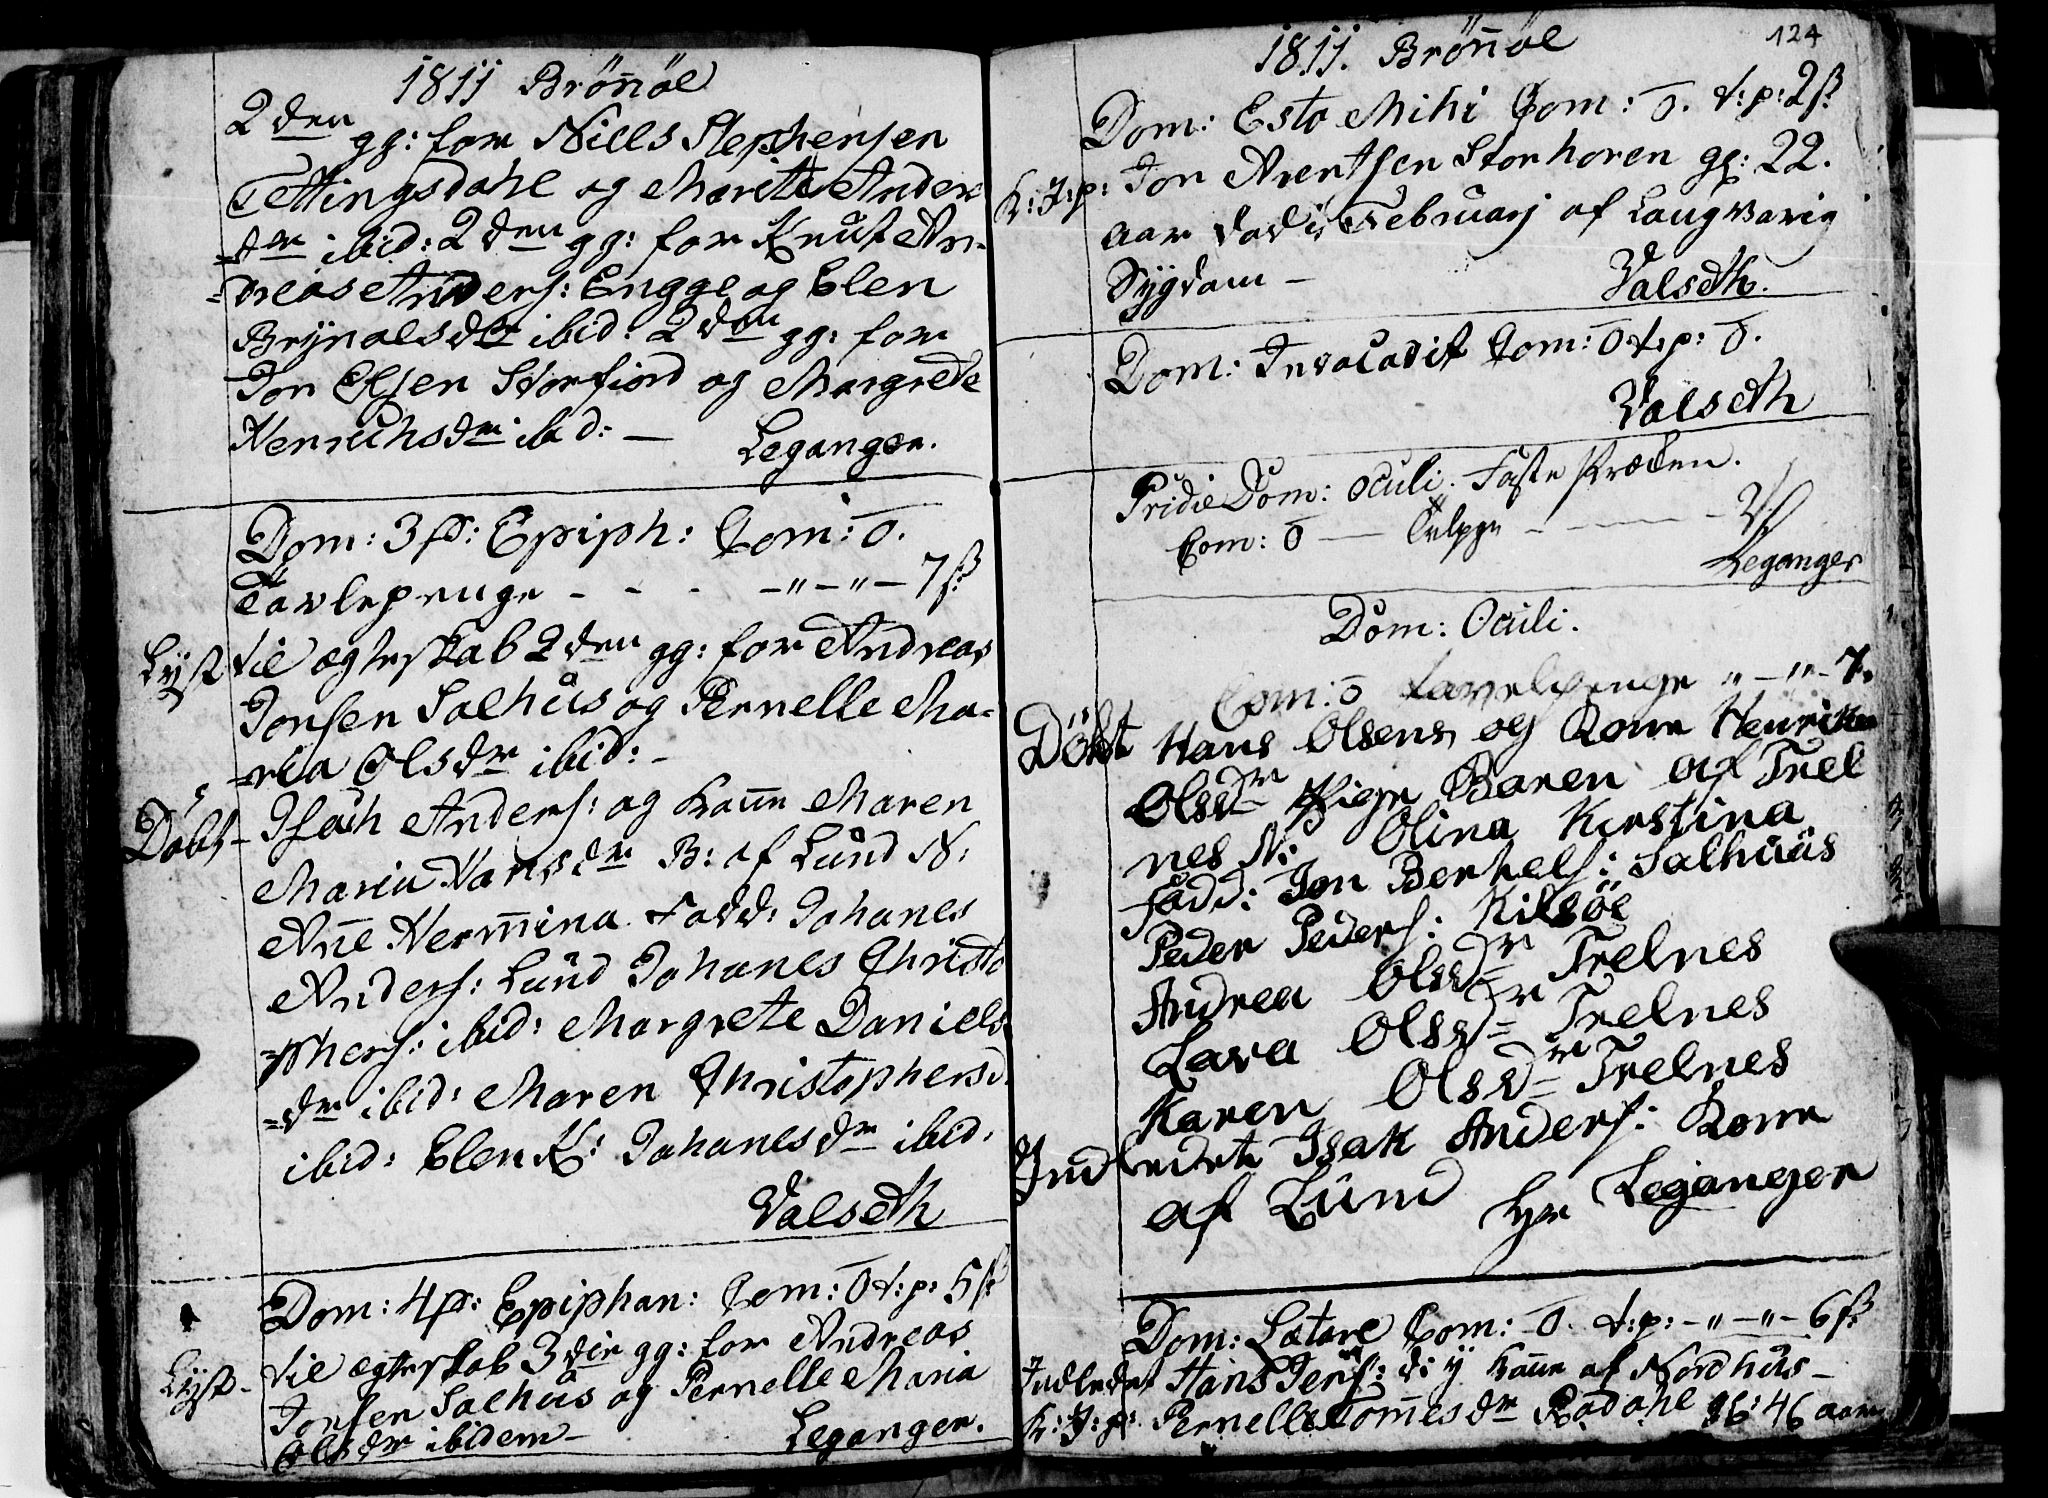 1811 Brönöe
2den gg: for Niels Stephensen
Tettingsdahl og Marite Anders
dr ibid: 2den gg: for Knut An-
=dreas Anders: Engge og Elen
Brynolsdr ibid: 2den gg: for
Jon Olsen Storfiord og Margrete
Henrichsdr ibid: — Leganger.
Dom: 3 p: Epiph: Com: 0.
Tavlepenge - - - -"-"- 7 ß
Lyst til ægteskab 2den gg: for Andreas
Jonsen Salhus og Pernelle Ma-
=ria Olsdr ibid: -
Döbt- Isach Anders: og kone Maren
Maria Hansdr B: af Lund N:
Ane Hermina. Fadd: Johanes
Anders: Lund Johanes Christo
=phers: ibid: Margrete Daniels
=dr ibid: Maren Christophersd.
ibid: Elen K: Johanesdr ibid:
Valseth
Dom: 4 p: Epiphan: Com: 0 t:p: 5 ß
Lyst- til ægteskab 3die gg: for Andreas
Jonsen Salhus og Pernelle Maria
Olsdr ibidem - Leganger.
124
1811. Brönöe
Dom: Esto Mihi Com: 0. t:p: 2 ß
K: J:p: Jon Arentsen Storhoren gl: 22.
aar Februarj af Langvarig
Sygdom - Valseth.
Dom: Invocavit Com: 0 t:p: 0.
Valseth
Pridie Dom: Oculi. Faste Præken.
Com: 0 —
Leganger
Dom: Oculi.
Com: 0 Tavelpenge "-"- 7.
Döbt Hans Olsens og Kone Henrika
Olsdr Pige Baren af Trel
nes N: Olina Kirstina
Fadd: Jon Berthels: Salhuus
Peder Peders: Kilsöe
Andrea Olsdr Trelnes
Lava Olsdr Trelnes
Karen Olsdr Trelnes
Indledet Isak Anders: Kone
af Lund Hr Leganger
Dom: Lætare Com: 0. t:p: -"-"- 6 ß
Indledet Hans Jens: d: y kone af Nordhus-
K: J: p: Pernelle Tomesdr Rödahl gl: 46 aar